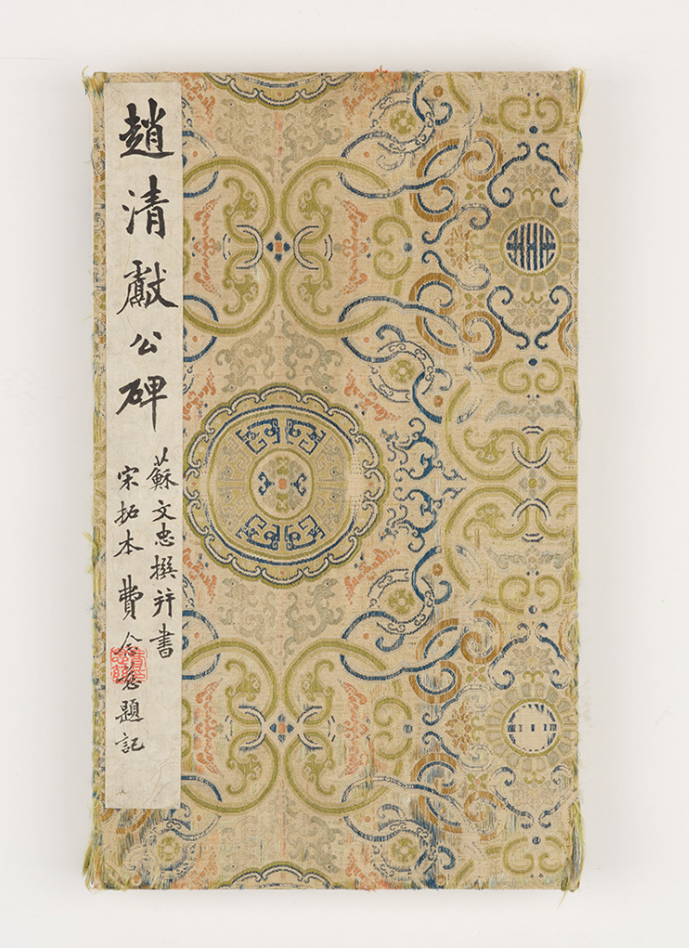 趙清獻公碑
蘇文忠撰并書
宋拓本費念慈題記